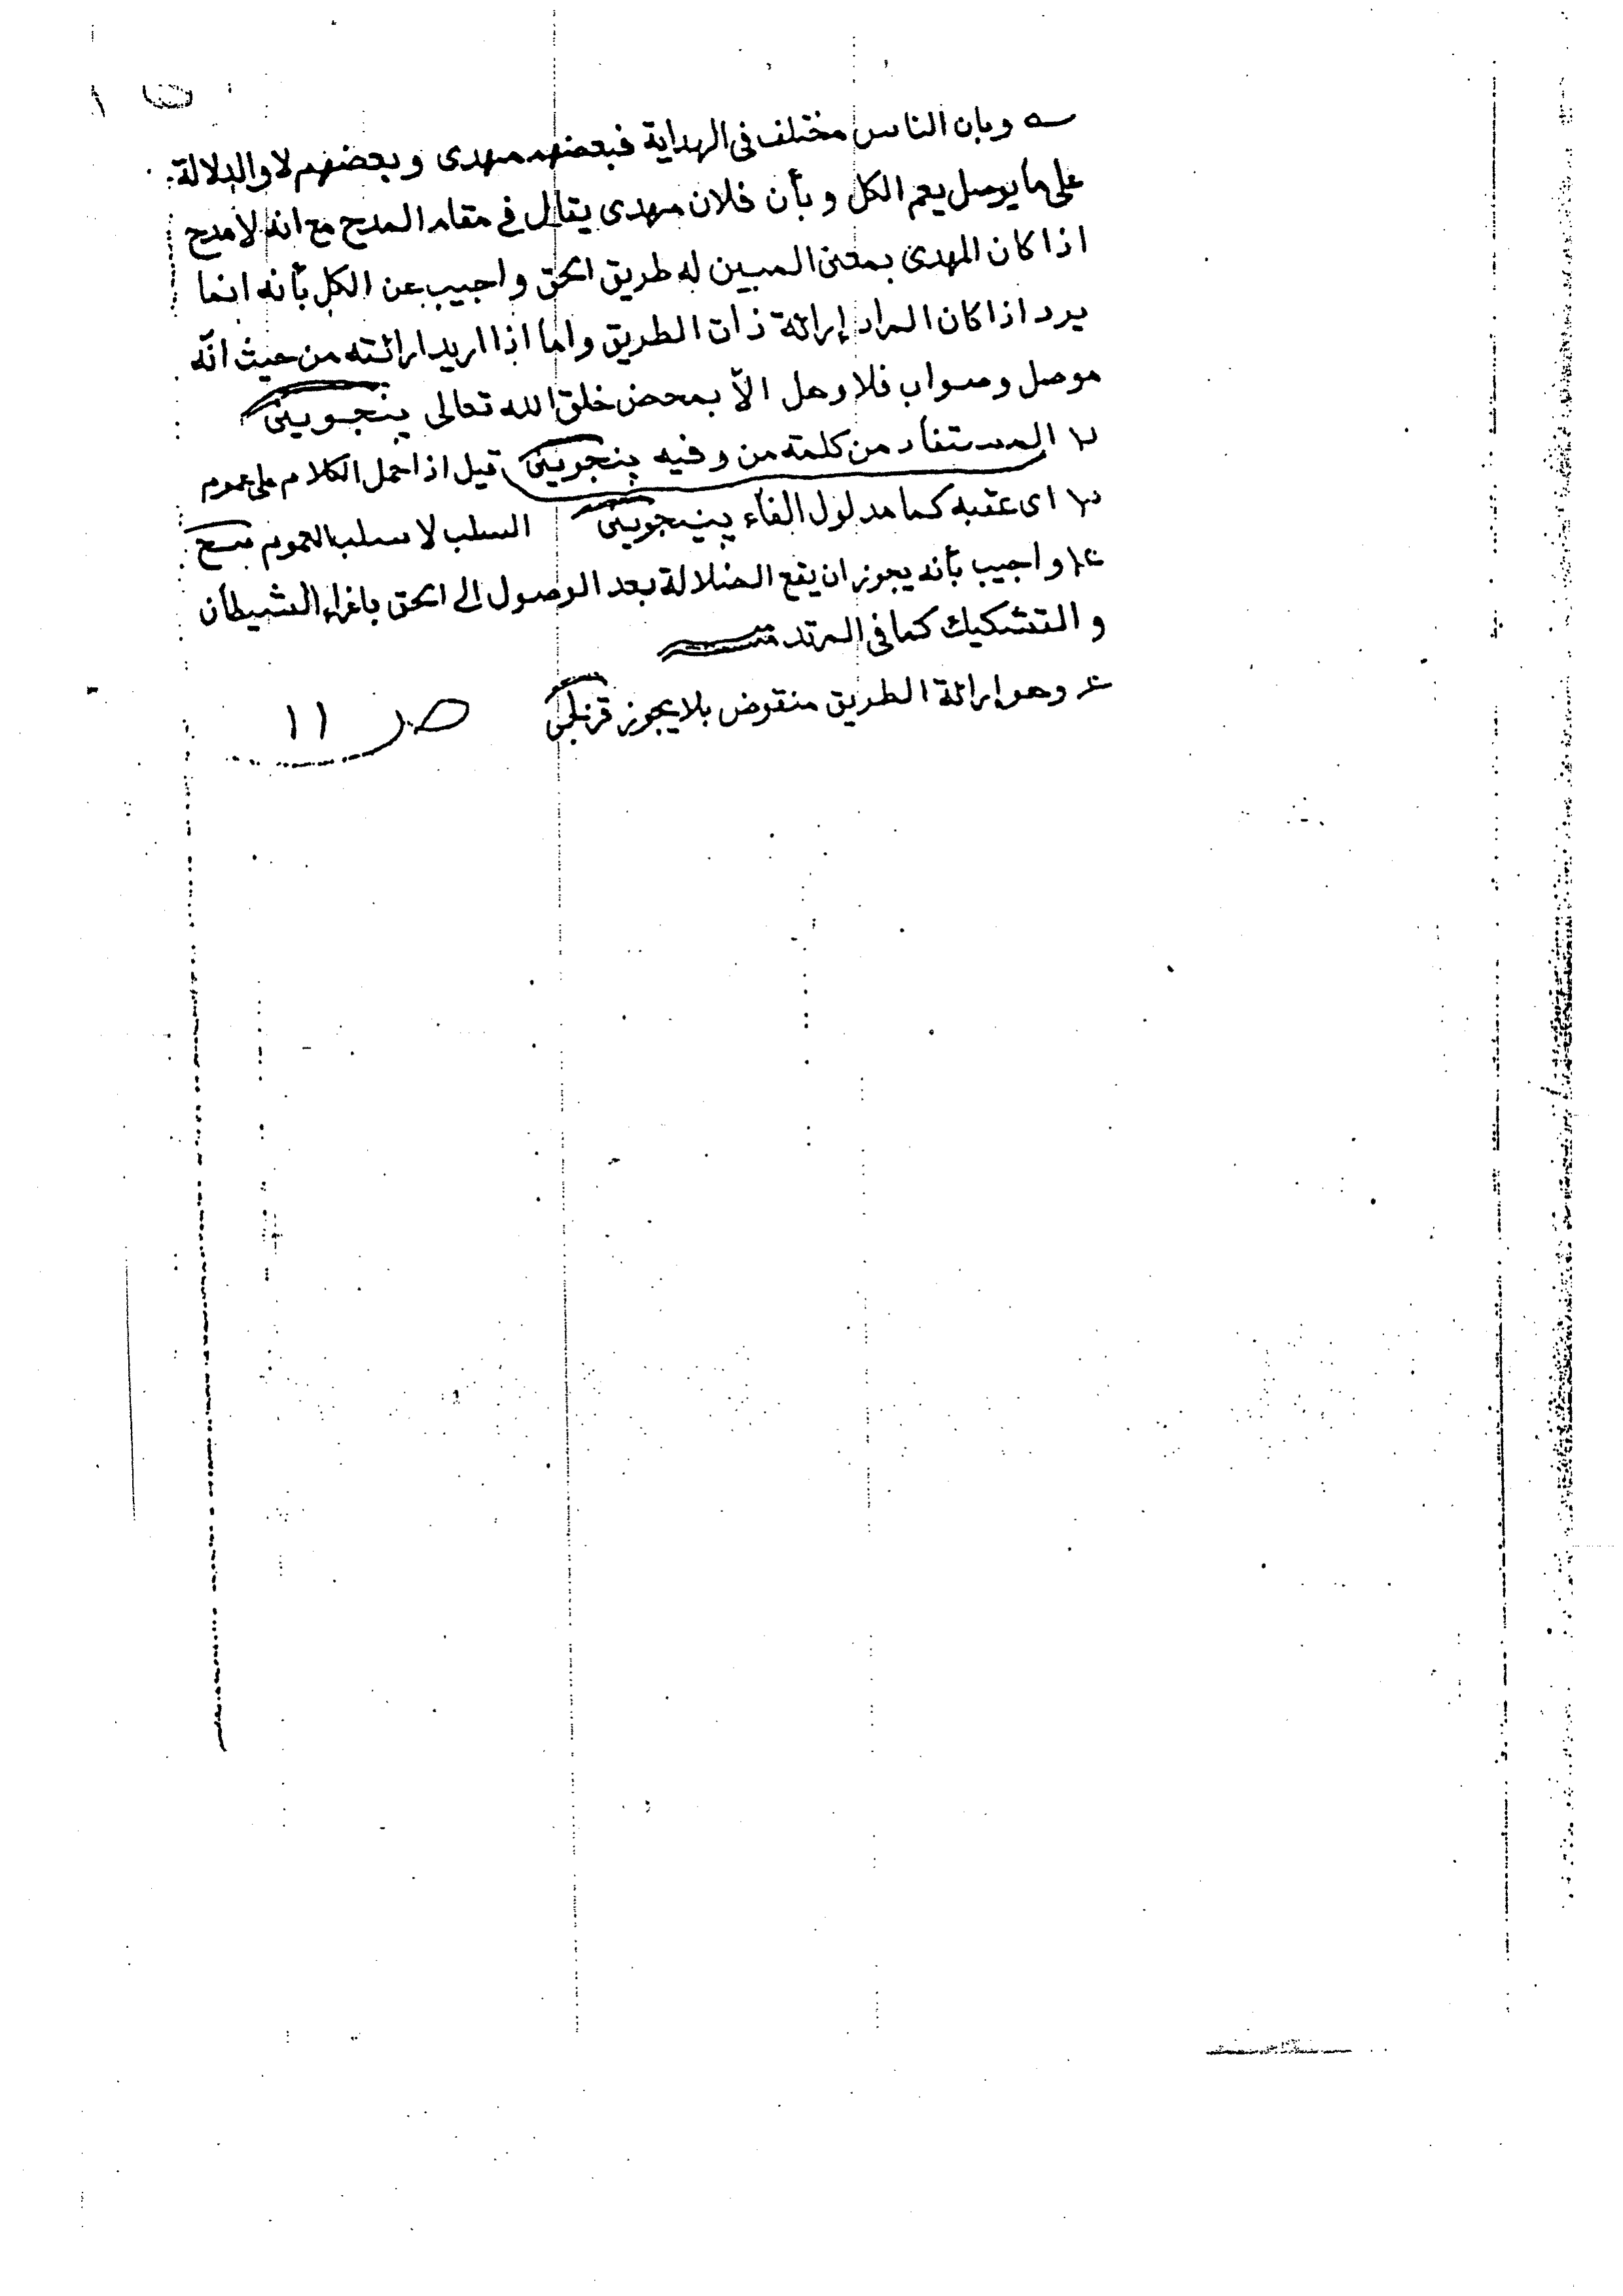 وبان الناس مختلف فى الهداية فبعضهم مهدى وبعضهم لا والدلالة
على ما يوصل يعم الكل وبأن فلان مهدى يقال فى مقام المدح مع انه لا مدح
اذا كان المهدى بمعنى المبين له طريق الحق واجيب عن الكل بأنه انما
يرد اذا كان المراد إرائة ذات الطريق واما اذا اريد ارائته من حيث انّه
موصل وصواب فلا وهل الاّ بمحض خلق الله تعالى پنجوينى
٢ المستفاد من كلمته من وفيه پنجوينى قيل اذا حمل الكلام على عموم
٣ اى عقبه كما مدلول الفاء پنجوينى السلب لا سلب العموم
واجيب بأنه يجوز ان يقع الضلالة بعد الوصول الى الحق باغراء الشيطان
والتشكيك كما فى المرتد
٤ وهو ارائة الطريق منقوض بلا يجوز قزلجى ص ١١